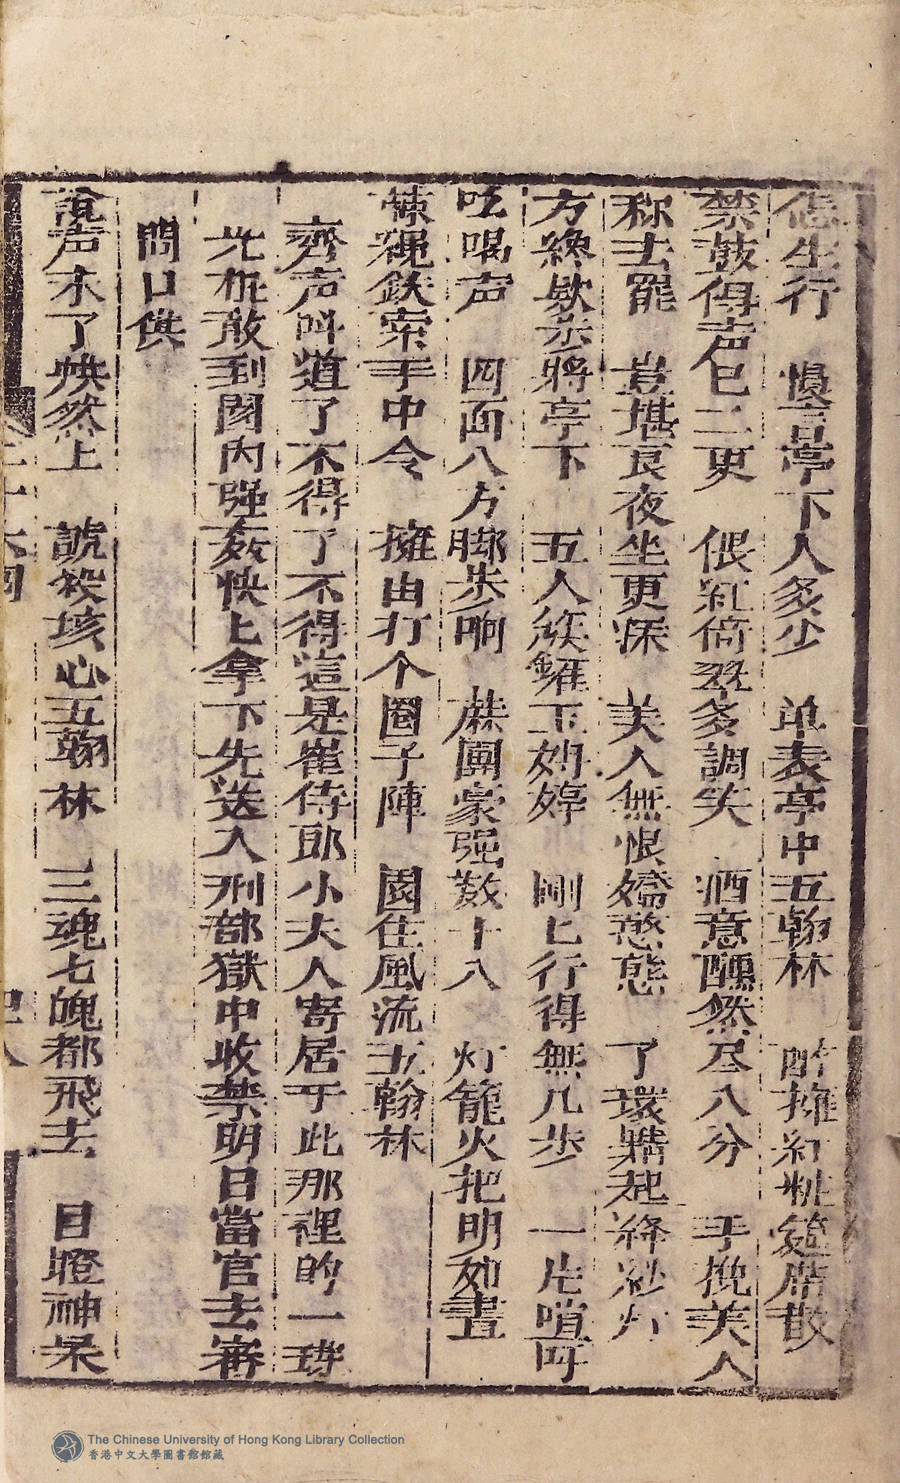 怎生行　慢言亭下人多少　单表亭中五翰林　酔擁紅粧筵席散
禁鼓傳声已二更　偎紅倚翠多調笑　酒意醺然尽八分　手挽美人
称去罷　豈堪良夜坐更深　美人無恨嬌憨態　了环携起絳紗灯
方纔欵步將亭下　五人簇擁玉娉婷　剛匕行得無几步　一片喧呼
吆喝声　四面八方脚步响　蔴團豪强数十人　灯籠火把明如晝
蔴繩鉄索手中令　擁由打个圈子陣　園住風流五翰林
齊声呌道了不得了不得這是崔侍郎小夫人寄居于此那裡的一班
光棍敢到園内强姦快上拿下先送入刑部獄中收禁明日當官去審
問口供
說声未了烘然上　諕殺垓心五翰林　三魂七魄都飛去　目瞪神呆
二十六回
四八
The Chinese University of Hong Kong Library Collection
香港中文大學圖書館館藏